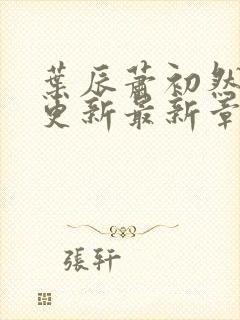 葉辰蕭初然
更新最新章
張軒